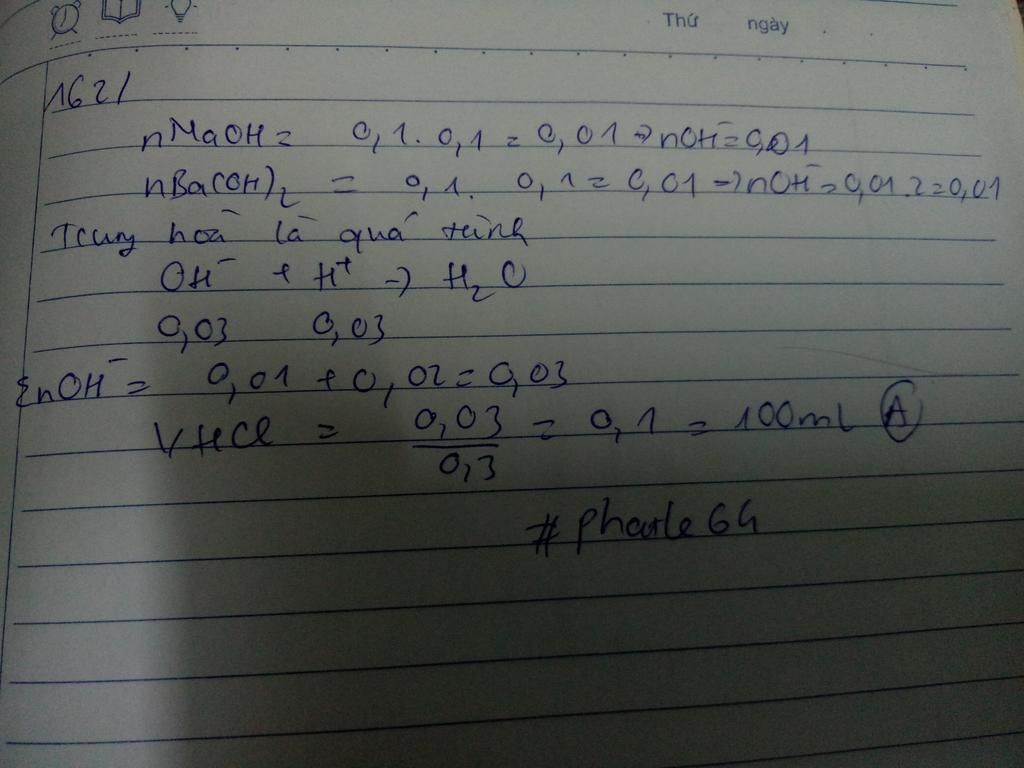 Thứ ngày
162/
nNaOH = 0,1. 0,1 = 0,01 → nOH⁻ = 0,01
nBa(OH)₂ = 0,1. 0,1 = 0,01 → nOH⁻ = 0,01.2 = 0,01
Trung hoà là quá trình
OH⁻ + H⁺ → H₂O
0,03 0,03
ΣnOH⁻ = 0,01 + 0,02 = 0,03
VHCl = 0,03/0,3 = 0,1 = 100ml (A)